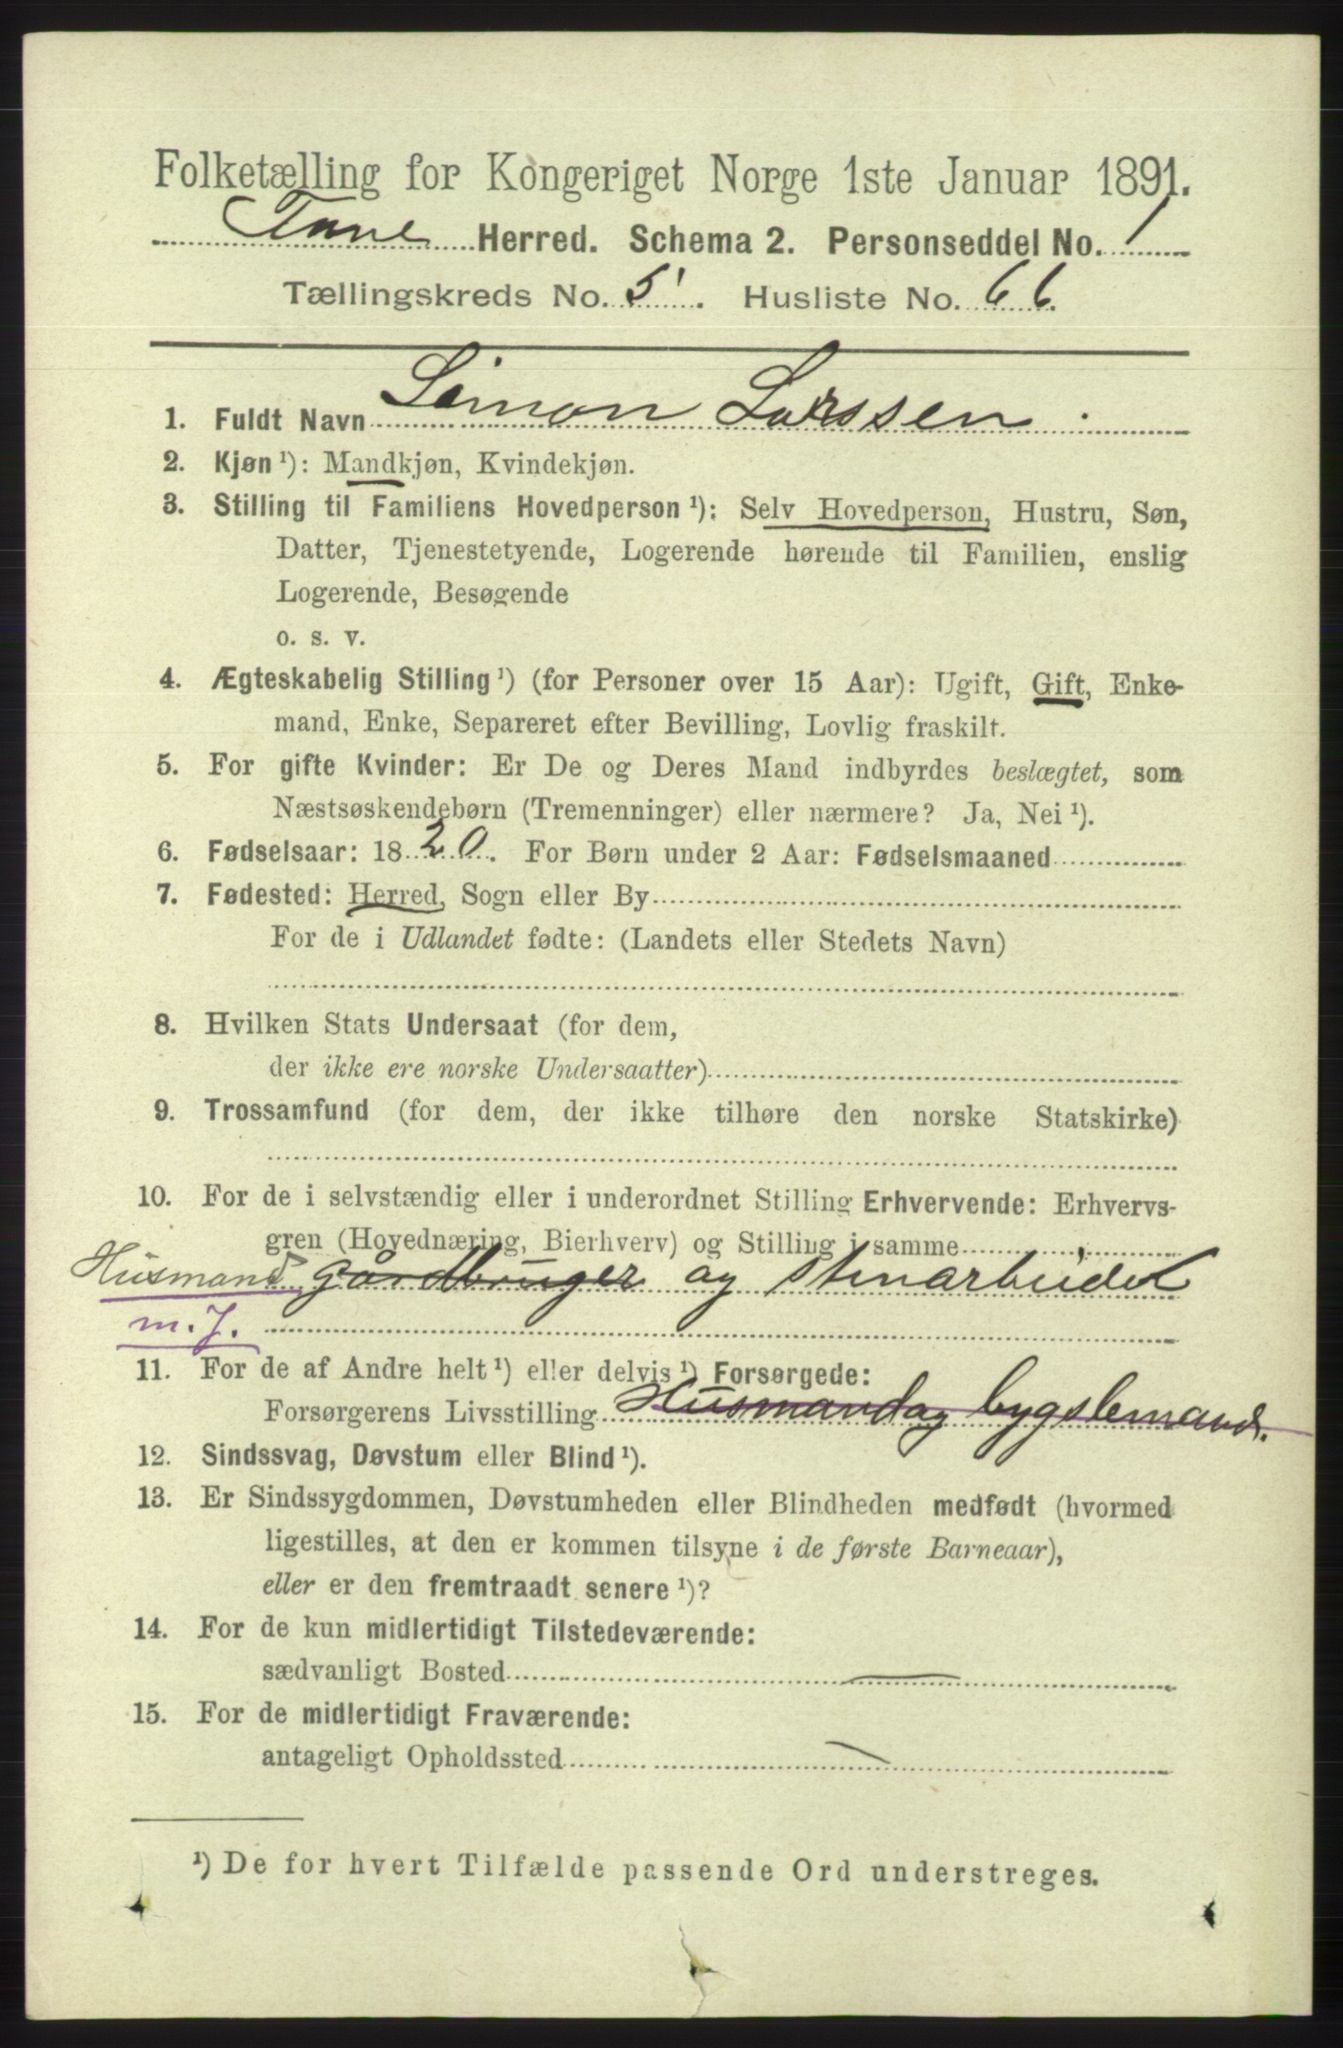 Folketælling for Kongeriget Norge 1ste Januar 1891.
Fane Herred. Schema 2. Personseddel No. 1
Tællingskreds No. 5. Husliste No. 66.
1. Fuldt Navn Simon Larssen.
2. Kjøn ¹): Mandkjøn, Kvindekjøn.
3. Stilling til Familiens Hovedperson ¹): Selv Hovedperson, Hustru, Søn,
Datter, Tjenestetyende, Logerende hørende til Familien, enslig
Logerende, Besøgende
o. s. v.
4. Ægteskabelig Stilling ¹) (for Personer over 15 Aar): Ugift, Gift, Enke-
mand, Enke, Separeret efter Bevilling, Lovlig fraskilt.
5. For gifte Kvinder: Er De og Deres Mand indbyrdes beslægtet, som
Næstsøskendebørn (Tremenninger) eller nærmere? Ja, Nei ¹).
6. Fødselsaar: 1820. For Børn under 2 Aar: Fødselsmaaned
7. Fødested: Herred, Sogn eller By
For de i Udlandet fødte: (Landets eller Stedets Navn)
8. Hvilken Stats Undersaat (for dem,
der ikke ere norske Undersaatter)
9. Trossamfund (for dem, der ikke tilhøre den norske Statskirke)
10. For de i selvstændig eller i underordnet Stilling Erhvervende: Erhvervs-
gren (Hovednæring, Bierhverv) og Stilling i samme
Husmand Gårdbruger og Stenarbeidet
m. J.
11. For de af Andre helt ¹) eller delvis ¹) Forsørgede:
Forsørgerens Livsstilling Husmand og bygslemand.
12. Sindssvag, Døvstum eller Blind ¹).
13. Er Sindssygdommen, Døvstumheden eller Blindheden medfødt (hvormed
ligestilles, at den er kommen tilsyne i de første Barneaar),
eller er den fremtraadt senere ¹)?
14. For de kun midlertidigt Tilstedeværende:
sædvanligt Bosted —
15. For de midlertidigt Fraværende:
antageligt Opholdssted —
¹) De for hvert Tilfælde passende Ord understreges.